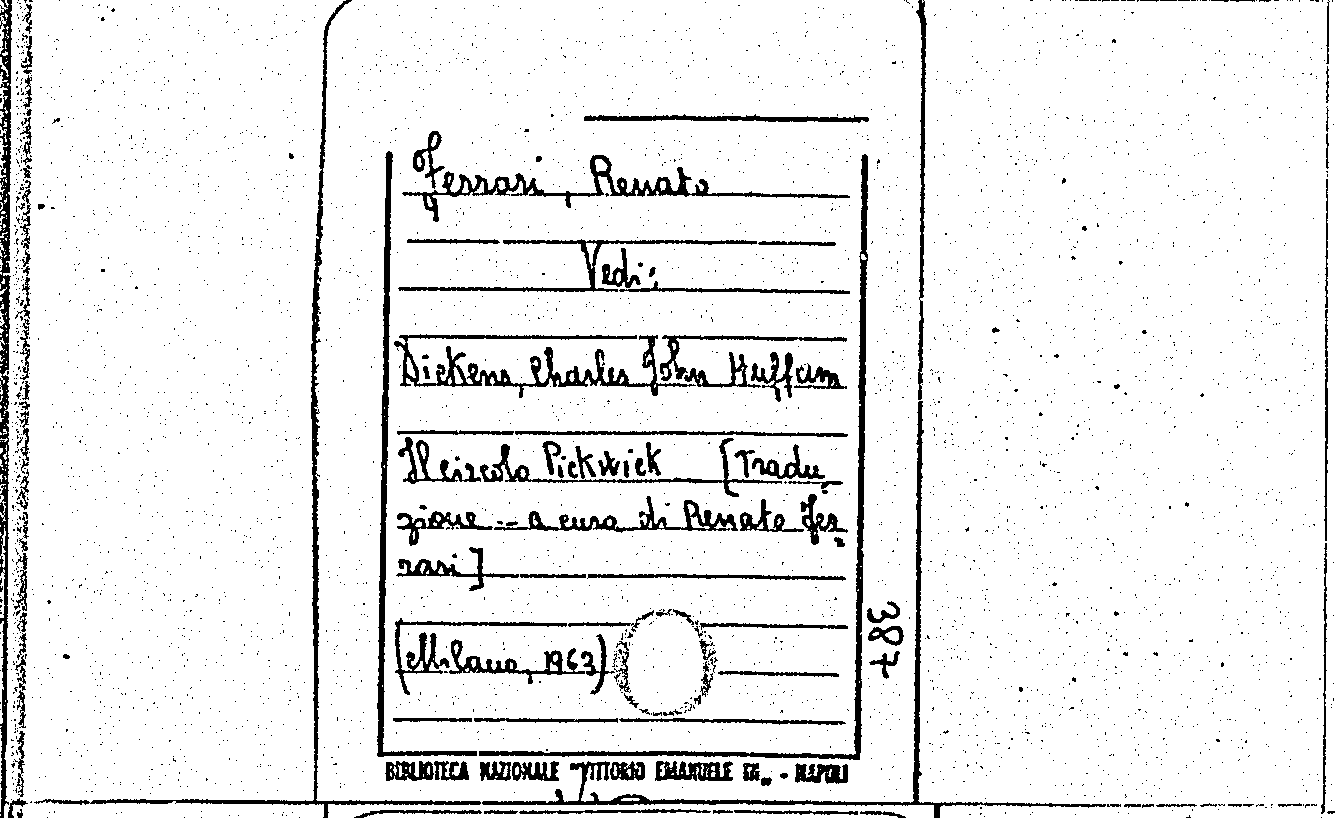 Ferrari, Renato
Vedi:
Dickens, Charles John Huffam
Il circolo Pickwick [Tradu-
zione -- a cura di Renato Fer-
rari]
(Milano, 1963)
387
BIBLIOTECA NAZIONALE "VITTORIO EMANUELE III„ - NAPOLI